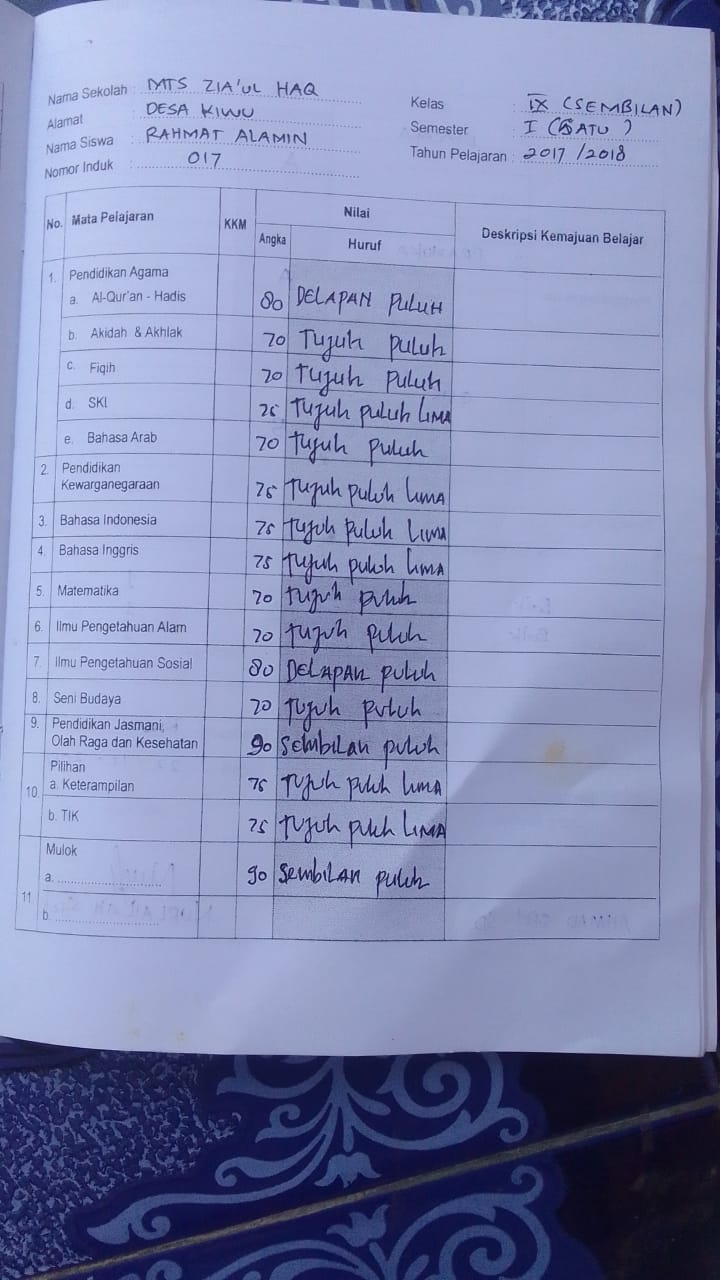 Nama Sekolah : MTS ZIA'UL HAQ
Alamat DESA KIWU
Nama Siswa : RAHMAT ALAMIN
Nomor Induk : 017
Kelas : IX (SEMBILAN)
Semester : I (SATU )
Tahun Pelajaran : 2017 /2018
No. Mata Pelajaran KKM Nilai Deskripsi Kemajuan Belajar
Angka Huruf
1. Pendidikan Agama
a. Al-Qur'an - Hadis 80 DELAPAN PULUH
b. Akidah & Akhlak 70 Tujuh puluh
c. Fiqih 70 Tujuh Puluh
d. SKI 75 Tujuh puluh LIMA
e. Bahasa Arab 70 Tujuh puluh
2. Pendidikan
Kewarganegaraan 75 Tujuh puluh LIMA
3. Bahasa Indonesia 75 Tujuh puluh LIMA
4. Bahasa Inggris 75 Tujuh puluh LIMA
5. Matematika 70 tujuh puluh
6. Ilmu Pengetahuan Alam 70 tujuh puluh
7. Ilmu Pengetahuan Sosial 80 DELAPAN puluh
8. Seni Budaya 70 Tujuh puluh
9. Pendidikan Jasmani,
Olah Raga dan Kesehatan 90 Sembilan puluh
10. Pilihan
a. Keterampilan 75 Tujuh puluh LIMA
b. TIK 75 Tujuh puluh LIMA
11. Mulok
a. 90 Sembilan puluh
b.